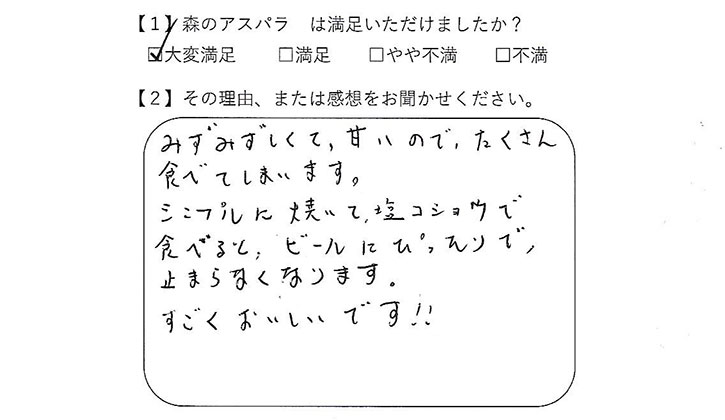 【１】森のアスパラ　は満足いただけましたか？
☑大変満足　□満足　□やや不満　□不満
【２】その理由、または感想をお聞かせください。
みずみずしくて、甘いので、たくさん
食べてしまいます。
シンプルに焼いて、塩コショウで
食べると、ビールにぴったりで、
止まらなくなります。
すごくおいしいです!!